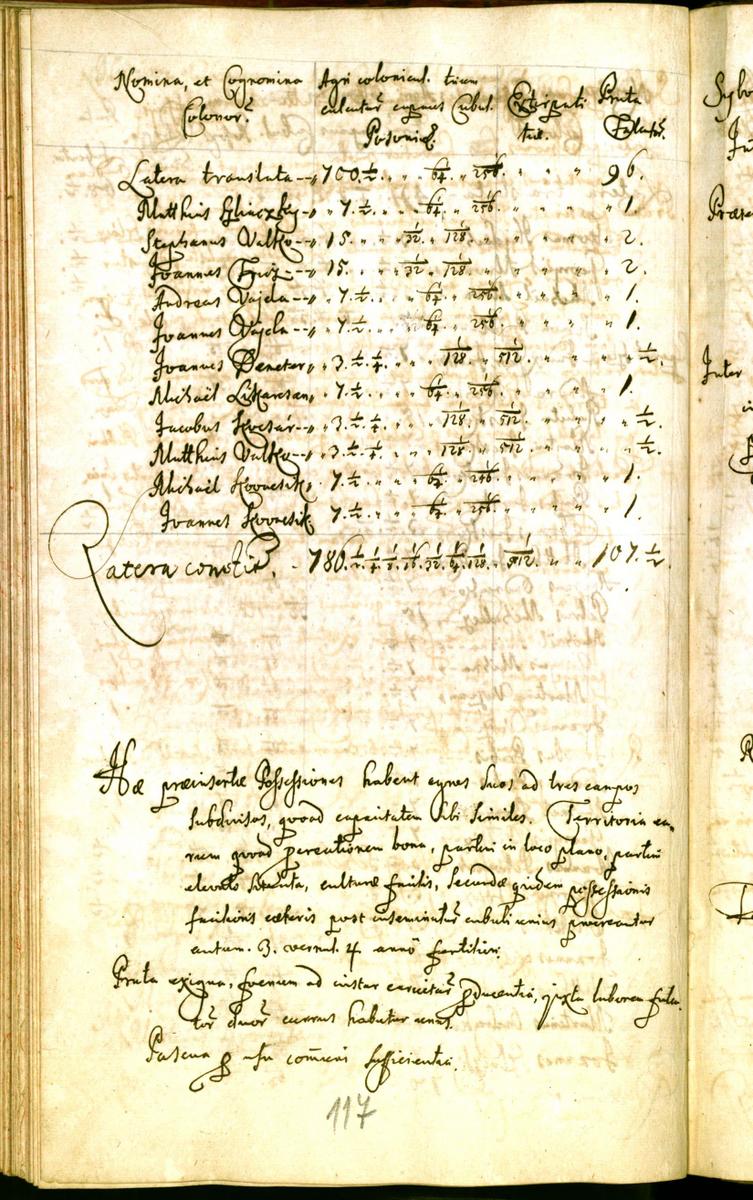 Nomina, et Cognomina
Colonor̃.
Agri colonical. trium
calcatur̃ cujusvis Cubul.
Posonien̄.
Extirpati
turæ.
Prata
Falcator̃.
Latera translata - „ 700. 1/2. „ „ 1/64. „ 1/256. „ „ „ 96.
Matthias - „ 7. 1/2. „ „ 1/64. „ 1/256. „ „ „ 1.
Stephanus Valko - „ 15. „ „ 1/32. „ 1/128. „ „ „ 2.
Joannes - „ 15. „ „ 1/32. „ 1/128. „ „ „ 2.
Andreas Vajda - „ 7. 1/2. „ „ 1/64. „ 1/256. „ „ „ 1.
Joannes Vajda - „ 7. 1/2. „ „ 1/64. „ 1/256. „ „ „ 1.
Joannes Demeter „ 3. 1/2. 1/4. „ „ 1/128. „ 1/512. „ „ „ 1/2.
Michaël „ 7. 1/2. „ „ 1/64. „ 1/256. „ „ „ 1.
Jacobus - „ 3. 1/2. 1/4. „ „ 1/128. „ 1/512. „ „ „ 1/2.
Matthias Valko - „ 3. 1/2. 1/4. „ „ 1/128. „ 1/512. „ „ „ 1/2.
Michaël Kovacsik „ 7. 1/2. „ „ 1/64. „ 1/256. „ „ „ 1.
Joannes Kovacsik. 7. 1/2. „ „ 1/64. „ 1/256. „ „ „ 1.
Latera - 786. 1/2. 1/4. 1/8. 1/16. 1/32. 1/64. 1/128. „ 1/512. „ „ 107. 1/2.
Hæ præinsertæ Possessiones habent agros suos ad tres campos
subdivisos, quoad capacitatem sibi similes. Territoria ea-
rum quoad bona, partim in loco plano, partim
elevato situata, culturæ facilis, secundæ quidem possessionis
facilioris cæteris post inseminatur̃ cubuli unius procreantur
autum. 3. vernal. 4 anno fertiliori.
Prata exigua, foenum ad instar producentia, juxta laborem falca-
tor̃ duor̃ currus habetur unus.
Pascua p̱ usu com̄uni sufficientia.
117